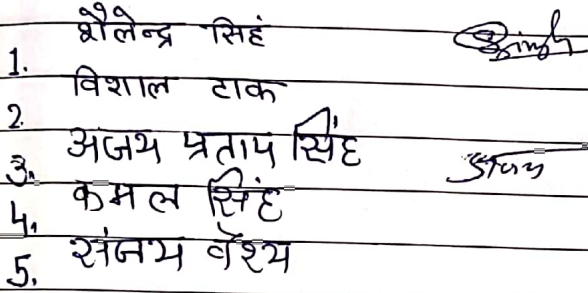 1. शैलेन्द्र सिहं Singh
2. विशाल टाक
3. अजय प्रताप सिंह अजय
4. कमल सिंह
5. संजय वैश्य